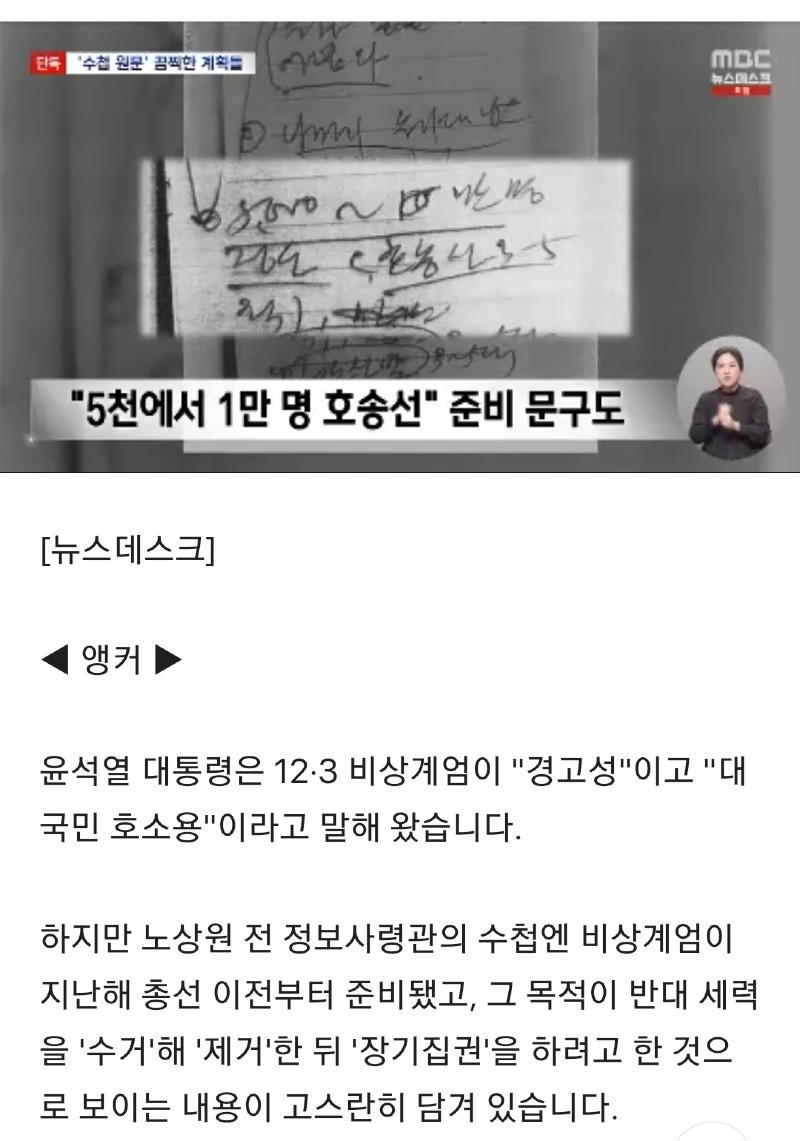 단독 '수첩 원문' 끔찍한 계획들
MBC
뉴스데스크
"5천에서 1만 명 호송선" 준비 문구도
[뉴스데스크]
◀ 앵커 ▶
윤석열 대통령은 12·3 비상계엄이 "경고성"이고 "대
국민 호소용"이라고 말해 왔습니다.
하지만 노상원 전 정보사령관의 수첩엔 비상계엄이
지난해 총선 이전부터 준비됐고, 그 목적이 반대 세력
을 '수거'해 '제거'한 뒤 '장기집권'을 하려고 한 것으
로 보이는 내용이 고스란히 담겨 있습니다.